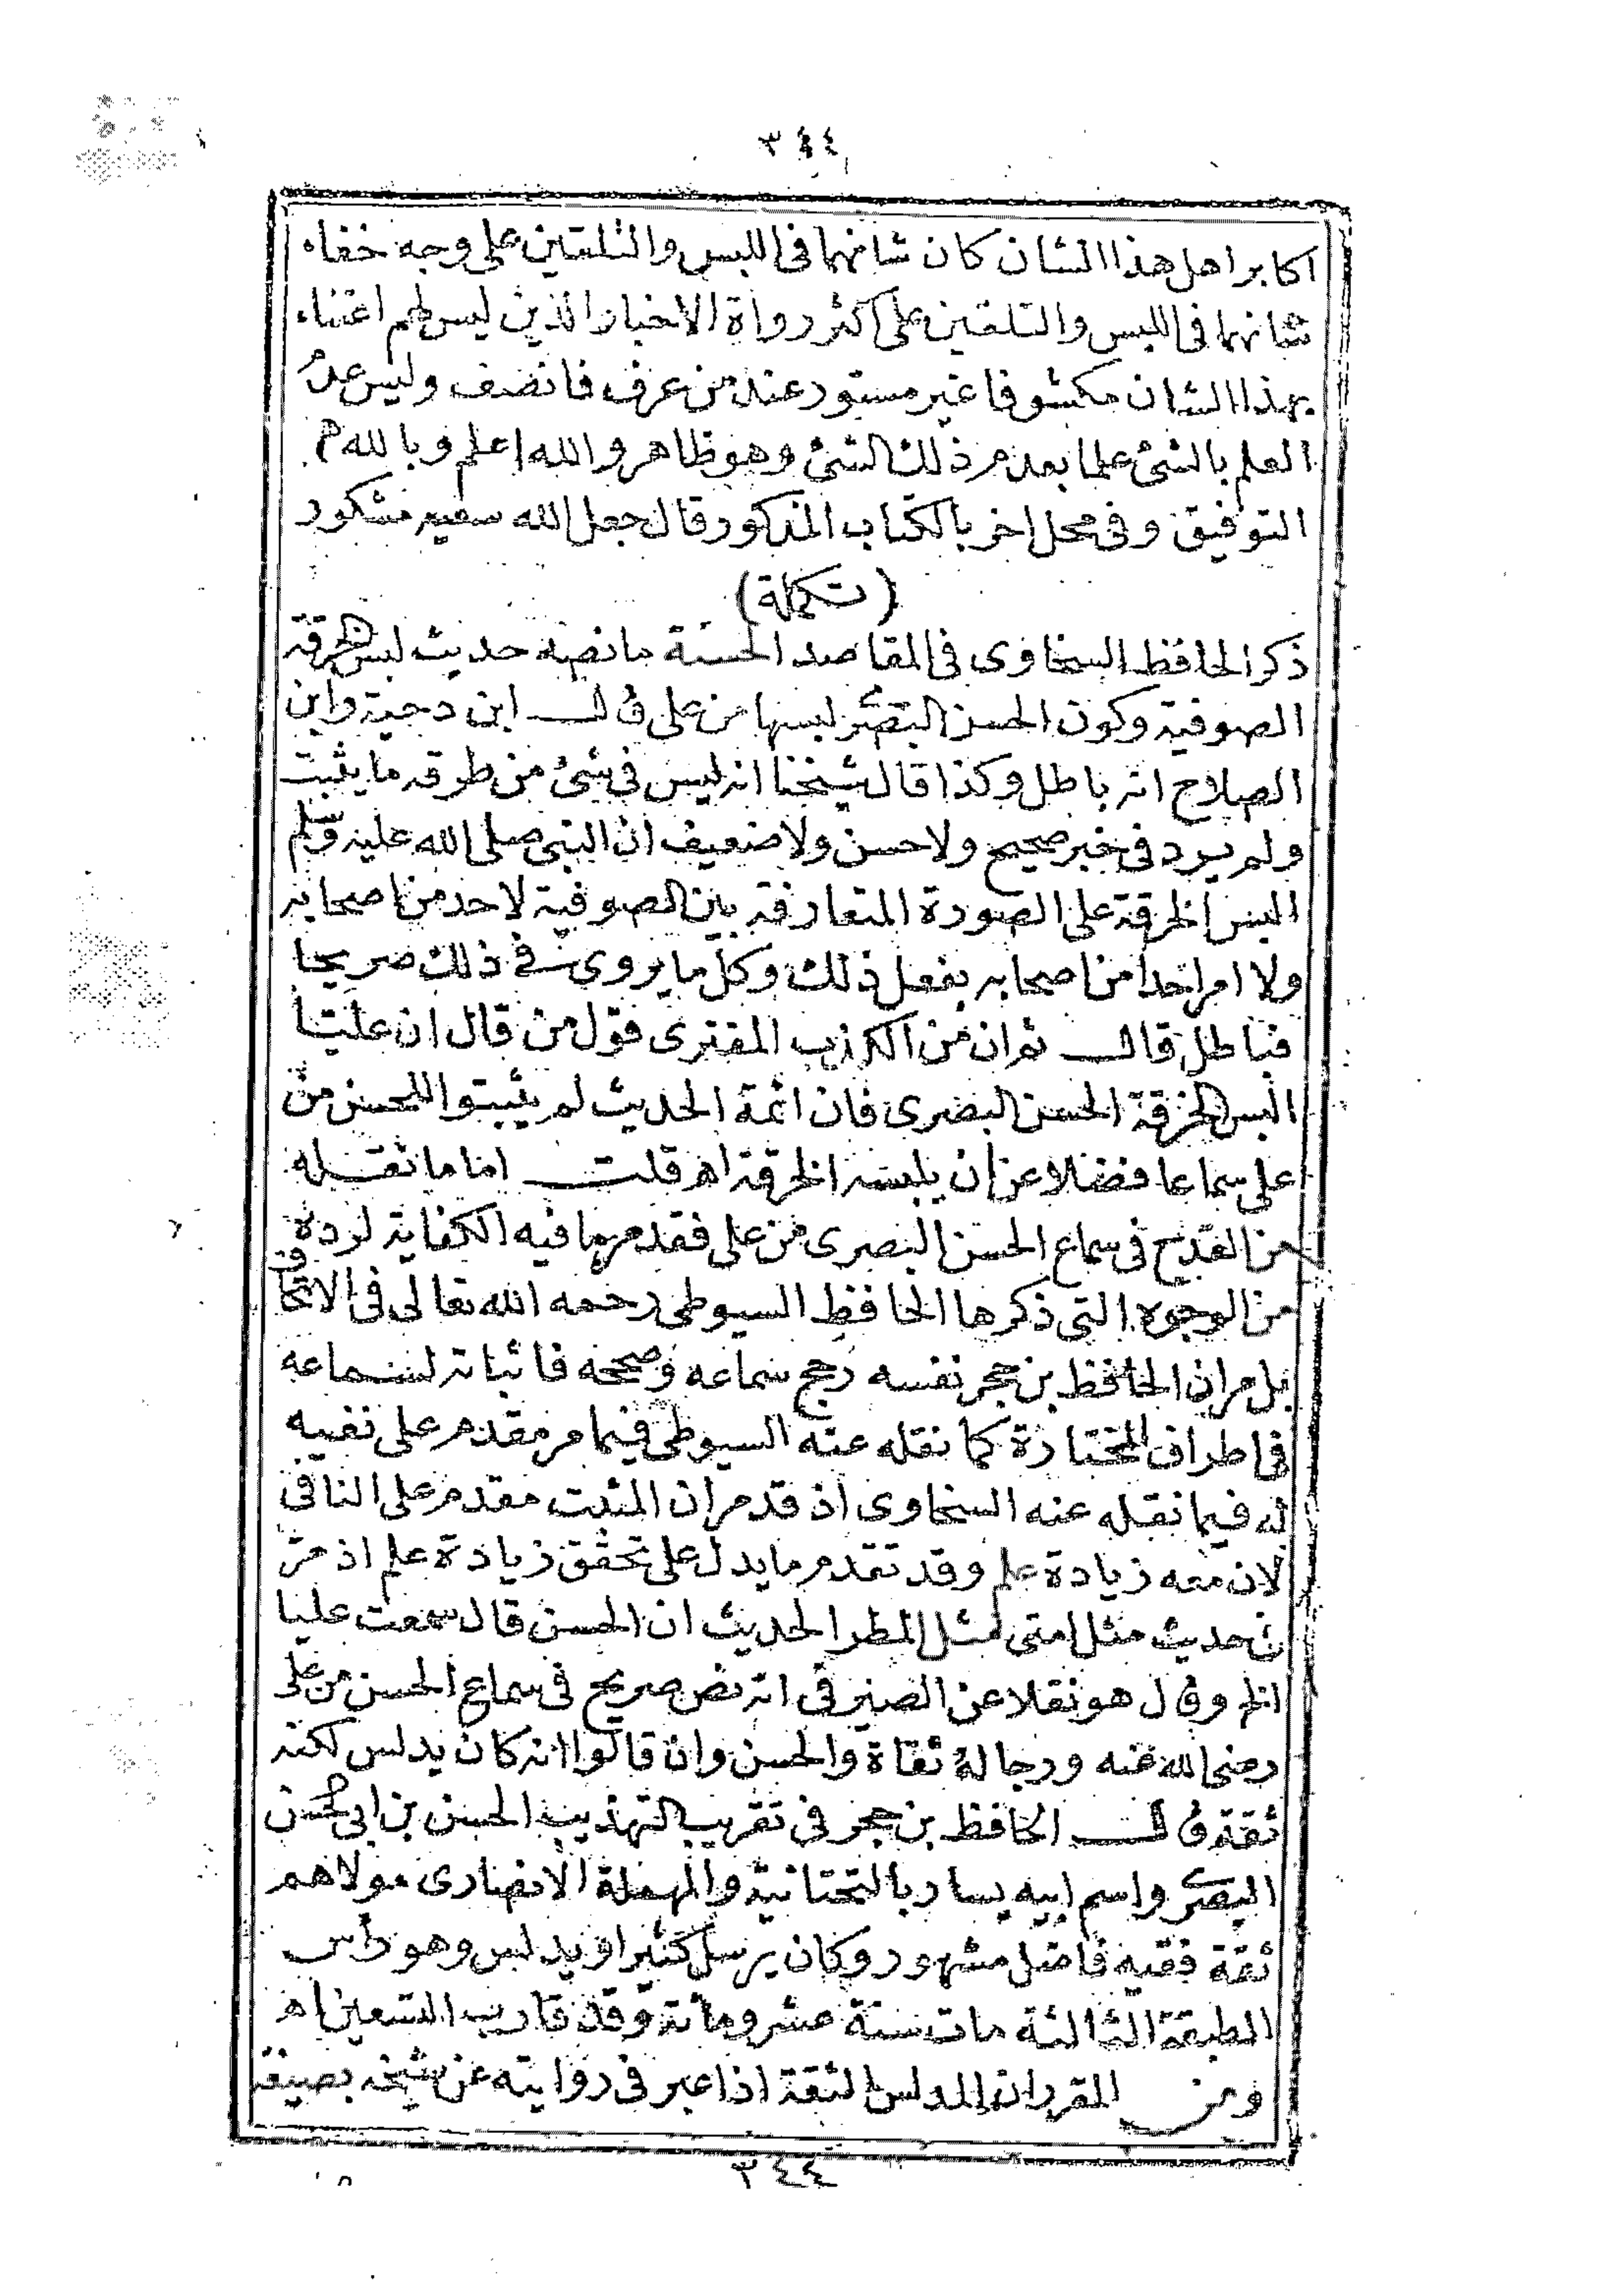 ٣٤٤
اكابر اهل هذا الشان كان شانهما فى اللبس والتلقين على وجه خفاء
شانهما فى اللبس والتلقين على اكثر رواة الاخبار الذين ليس لهم اعتناء
بهذا الشان مكشوفا غير مستور عند من عرف فانصف وليس عدم
العلم بالشئ علما بعدم ذلك الشئ وهو ظاهر والله اعلم وبالله
التوفيق وفى محل اخر بالكتاب المذكور قال جعل الله سعيه مشكور
(تكملة)
ذكر الحافظ السخاوى فى المقاصد الحسنة ما نصه حديث لبس الخرقة
الصوفية وكون الحسن البصرى لبسها من على قال ابن دحية وابن
الصلاح انه باطل وكذا قال شيخنا انه ليس فى شئ من طرقه ما يثبت
ولم يرد فى خبر صحيح ولا حسن ولا ضعيف ان النبى صلى الله عليه وسلم
البس الخرقة على الصورة المتعارفة بين الصوفية لاحد من اصحابه
ولا امر احدا من اصحابه بفعل ذلك وكل ما يروى فى ذلك صريحا
فباطل قال ثم ان من الكذب المفترى قول من قال ان عليا
البس الخرقة الحسن البصرى فان ائمة الحديث لم يثبتوا للحسن من
على سماعا فضلا عن ان يلبسه الخرقة اه قلت اما ما نقله
من القدح فى سماع الحسن البصرى من على فقد مر ما فيه الكفاية لرده
من الوجوه التى ذكرها الحافظ السيوطى رحمه الله تعالى فى الاتحاف
بل مر ان الحافظ بن حجر نفسه رجح سماعه وصححه فاثباته لسماعه
فى اطراف المختارة كما نقله عنه السيوطى فيما مر مقدم على نفيه
له فيما نقله عنه السخاوى اذ قد مر ان المثبت مقدم على النافى
لان معه زيادة علم وقد تقدم ما يدل على تحقق زيادة علم اذ مر
ن حديث مثل امتى مثل المطر الحديث ان الحسن قال سمعت عليا
الخ وقال هو نقلا عن الصيرفى انه نص صريح فى سماع الحسن من على
رضى الله عنه ورجاله ثقاة والحسن وان قالوا انه كان يدلس لكنه
ثقة قال الحافظ بن حجر فى تقريب التهذيب الحسن بن ابى الحسن
البصرى واسم ابيه يسار بالتحتانية والمهملة الانصارى مولاهم
ثقة فقيه فاضل مشهور وكان يرسل كثيرا ويدلس وهو راس
الطبقة الثالثة مات سنة عشر ومائة وقد قارب التسعين اه
ومن المقرر ان المدلس الثقة اذا عبر فى روايته عن شيخه بصيغة
٣٤٤